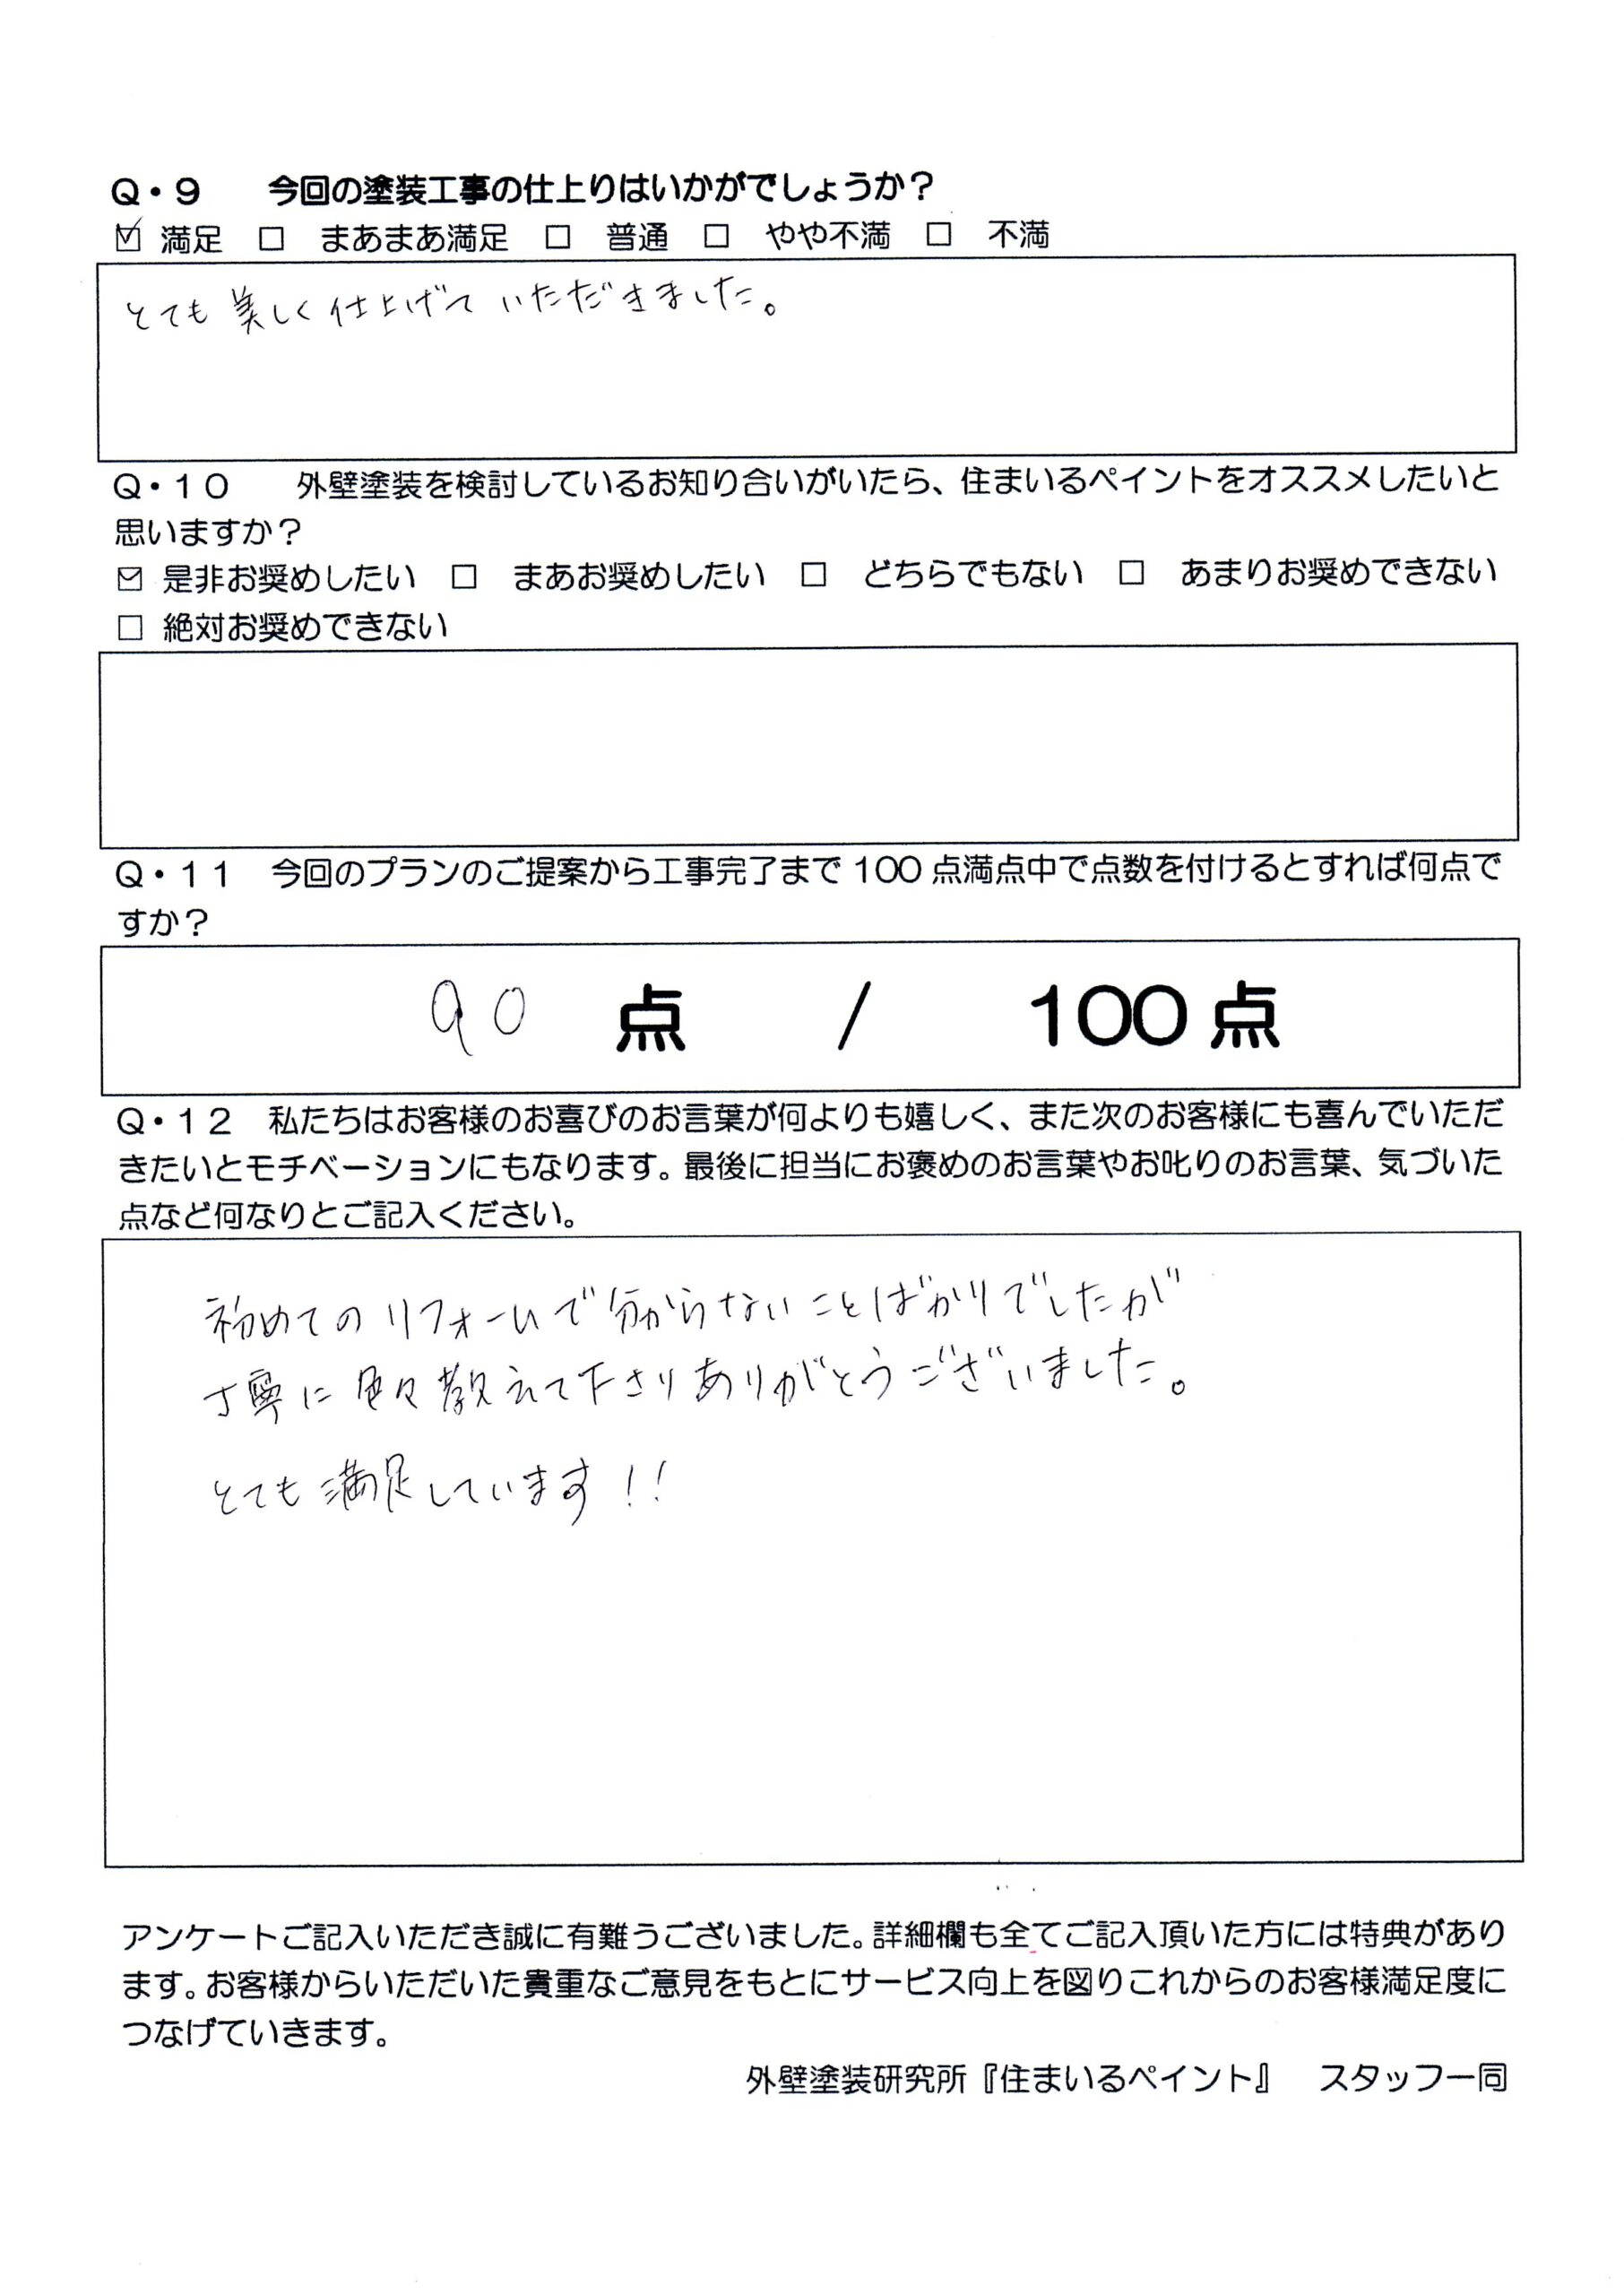 Q・9　今回の塗装工事の仕上りはいかがでしょうか？
☑ 満足 □ まあまあ満足 □ 普通 □ やや不満 □ 不満
とても美しく仕上げていただきました。
Q・10　外壁塗装を検討しているお知り合いがいたら、住まいるペイントをオススメしたいと
思いますか？
☑ 是非お奨めしたい □ まあお奨めしたい □ どちらでもない □ あまりお奨めできない
□ 絶対お奨めできない
Q・11　今回のプランのご提案から工事完了まで100点満点中で点数を付けるとすれば何点で
すか？
90 点 / 100点
Q・12　私たちはお客様のお喜びのお言葉が何よりも嬉しく、また次のお客様にも喜んでいただ
きたいとモチベーションにもなります。最後に担当にお褒めのお言葉やお叱りのお言葉、気づいた
点など何なりとご記入ください。
初めてのリフォームで分からないことばかりでしたが
丁寧に色々教えて下さりありがとうございました。
とても満足しています！！
アンケートご記入いただき誠に有難うございました。詳細欄も全てご記入頂いた方には特典があり
ます。お客様からいただいた貴重なご意見をもとにサービス向上を図りこれからのお客様満足度に
つなげていきます。
外壁塗装研究所『住まいるペイント』　スタッフ一同